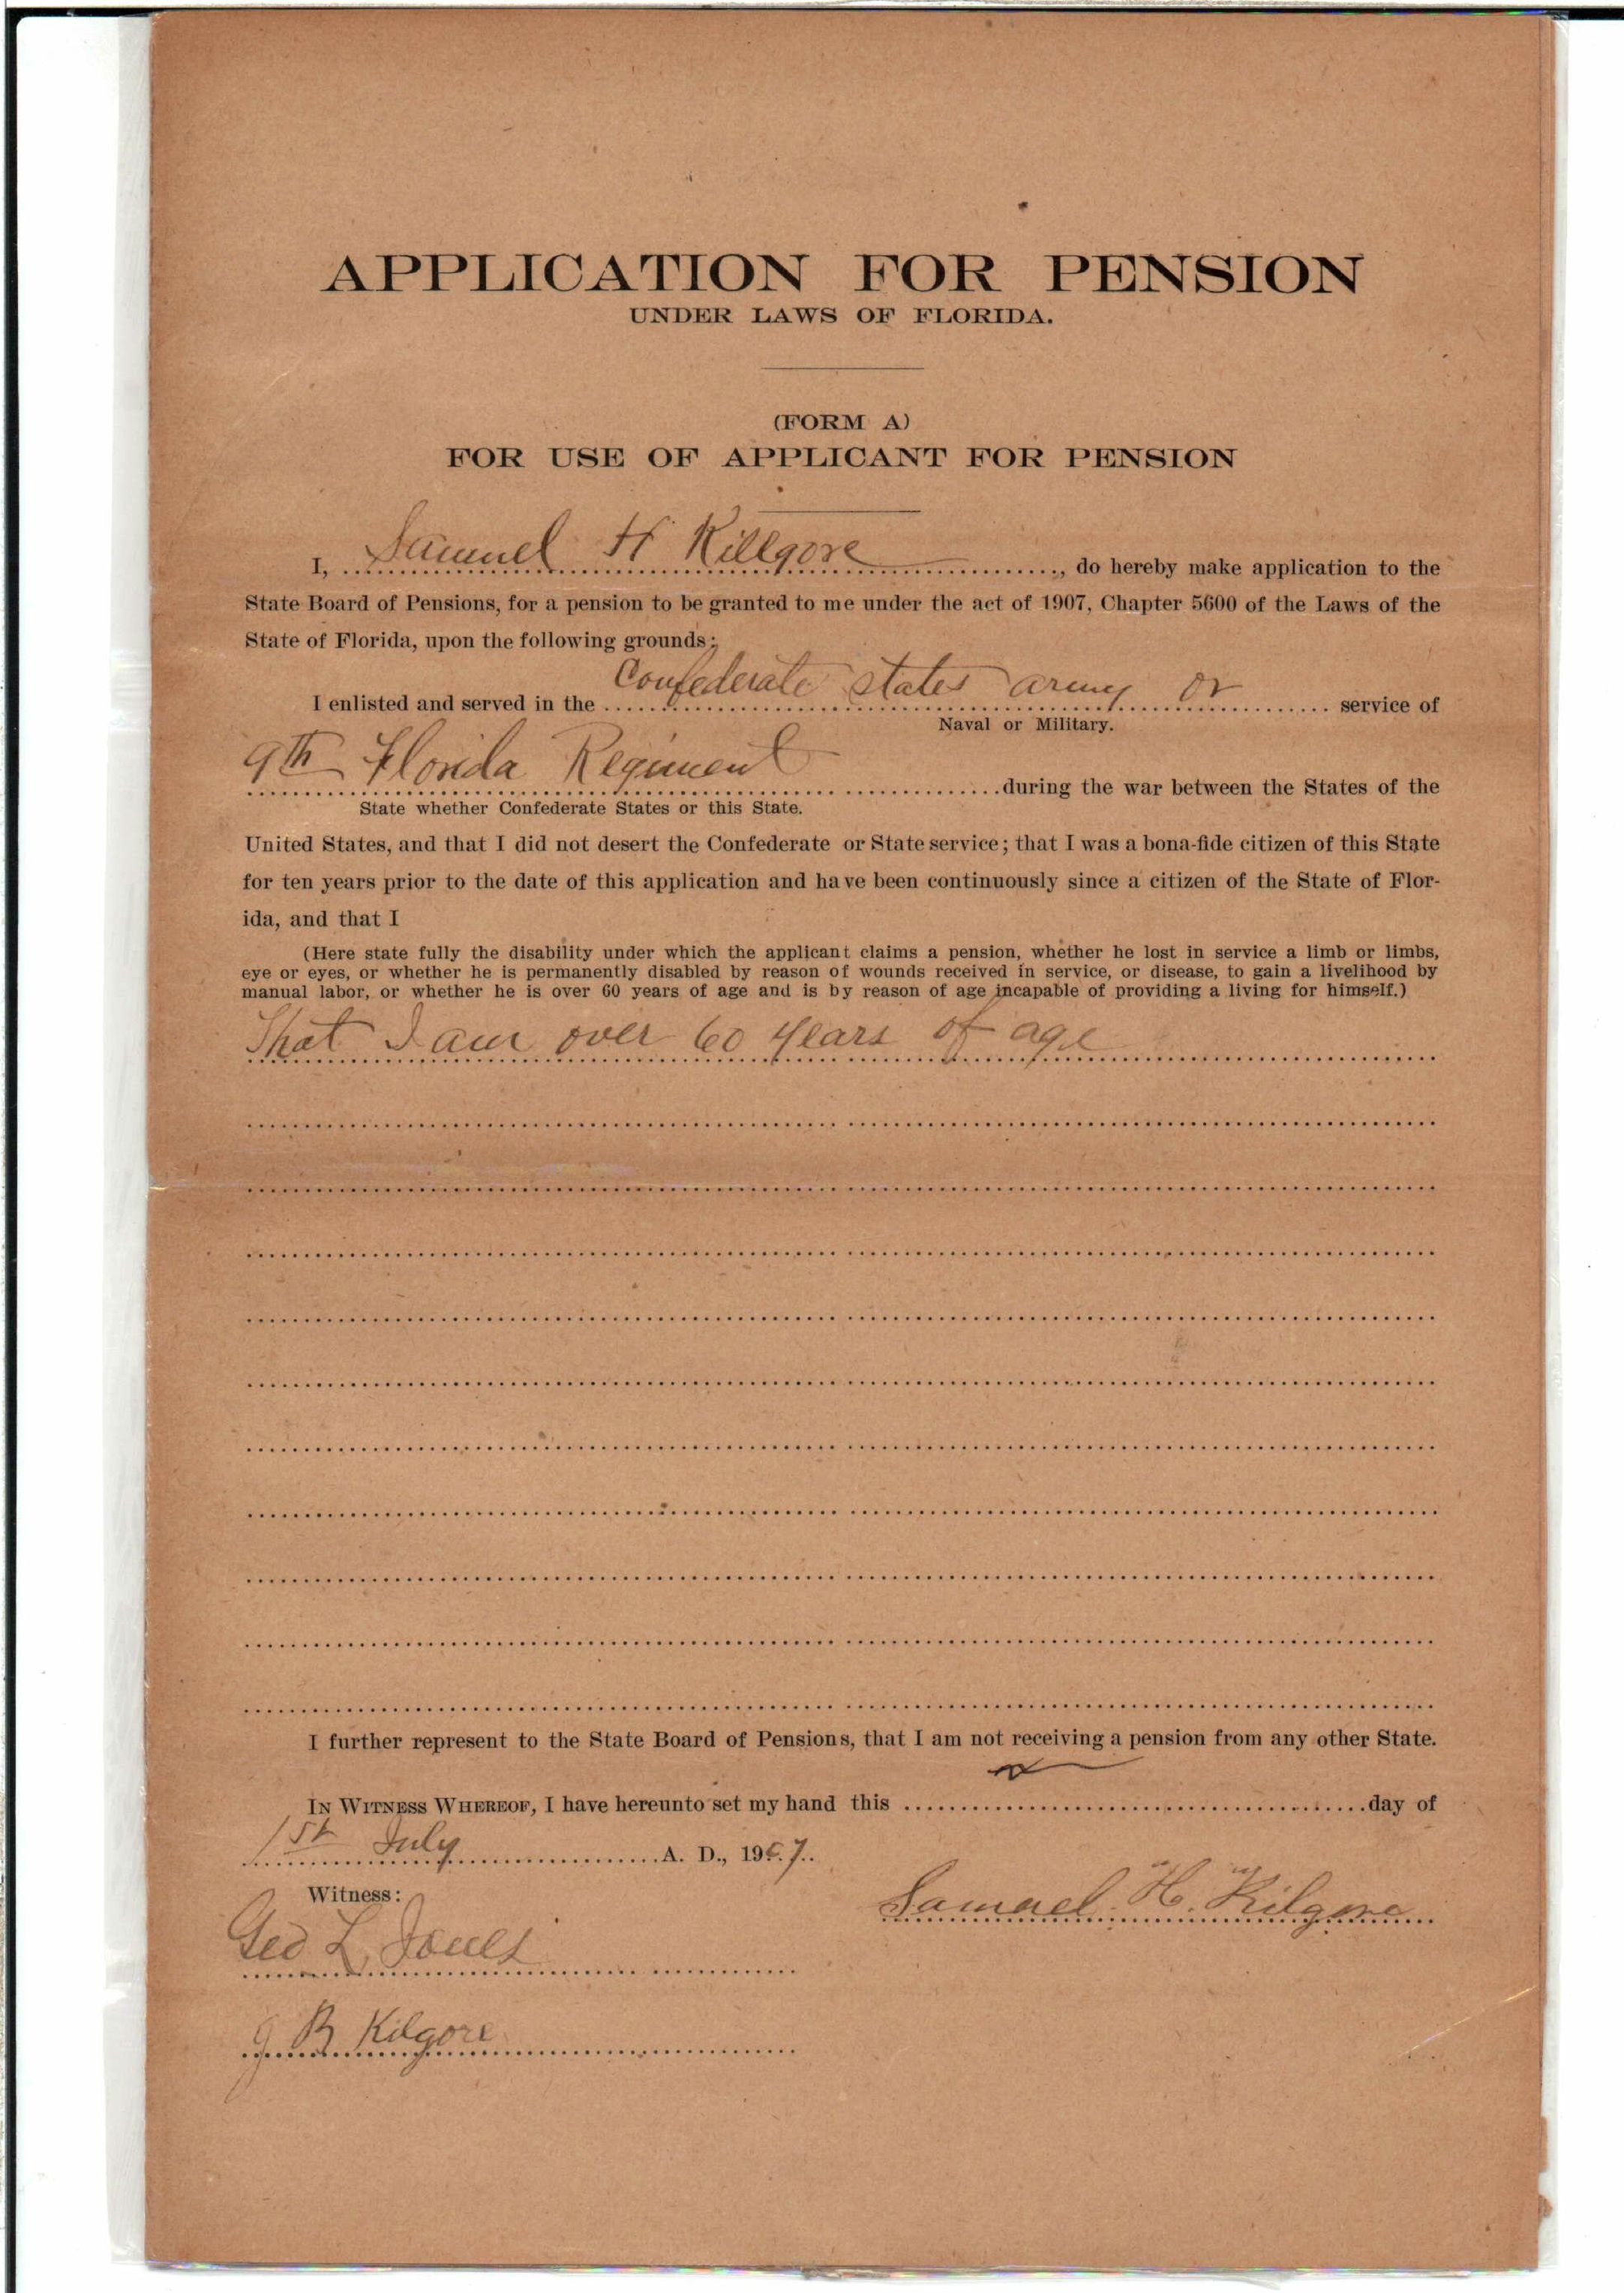 APPLICATION FOR PENSION
UNDER LAWS OF FLORIDA.
(FORM A)
FOR USE OF APPLICANT FOR PENSION
I, Samuel H Killgore, do hereby make application to the
State Board of Pensions, for a pension to be granted to me under the act of 1907, Chapter 5600 of the Laws of the
State of Florida, upon the following grounds:
I enlisted and served in the Confederate States army or service of
Naval or Military.
9th Florida Regiment during the war between the States of the
State whether Confederate States or this State.
United States, and that I did not desert the Confederate or State service; that I was a bona-fide citizen of this State
for ten years prior to the date of this application and have been continuously since a citizen of the State of Flor-
ida, and that I
(Here state fully the disability under which the applicant claims a pension, whether he lost in service a limb or limbs,
eye or eyes, or whether he is permanently disabled by reason of wounds received in service, or disease, to gain a livelihood by
manual labor, or whether he is over 60 years of age and is by reason of age incapable of providing a living for himself.)
That I am over 60 years of age
I further represent to the State Board of Pensions, that I am not receiving a pension from any other State.
IN WITNESS WHEREOF, I have hereunto set my hand this day of
1st July A. D., 1907.
Witness:
Samuel H. Kilgore
Geo L Jones
J B Kilgore